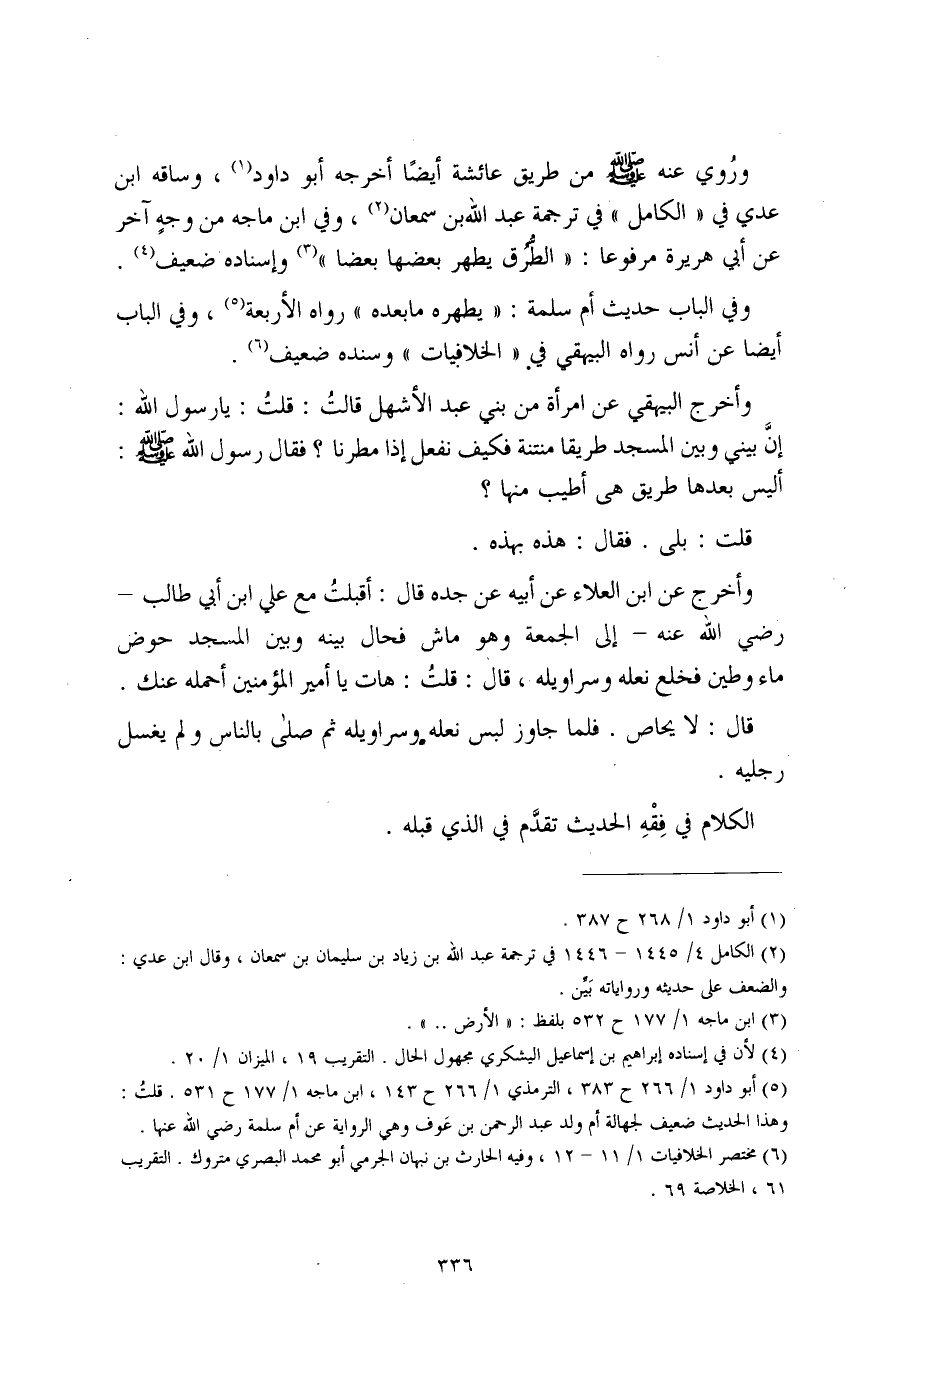 ورُوي عنه ﷺ من طريق عائشة أيضًا أخرجه أبو داود(١) ، وساقه ابن
عدي في « الكامل » في ترجمة عبد الله بن سمعان(٢) ، وفي ابن ماجه من وجهٍ آخر
عن أبي هريرة مرفوعا : « الطُّرُق يطهر بعضها بعضا »(٣) وإسناده ضعيف(٤) .
وفي الباب حديث أم سلمة : « يطهره مابعده » رواه الأربعة(٥) ، وفي الباب
أيضا عن أنس رواه البيهقي في « الخلافيات » وسنده ضعيف(٦) .
وأخرج البيهقي عن امرأة من بني عبد الأشهل قالتُ : قلتُ : يارسول الله :
إنَّ بيني وبين المسجد طريقا منتنة فكيف نفعل إذا مطرنا ؟ فقال رسول الله ﷺ :
أليس بعدها طريق هى أطيب منها ؟
قلت : بلى . فقال : هذه بهذه .
وأخرج عن ابن العلاء عن أبيه عن جده قال : أقبلتُ مع علي ابن أبي طالب –
رضي الله عنه – إلى الجمعة وهو ماش فحال بينه وبين المسجد حوض
ماء وطين فخلع نعله وسراويله ، قال : قلتُ : هات يا أمير المؤمنين أحمله عنك .
قال : لا يحاص . فلما جاوز لبس نعله وسراويله ثم صلىٰ بالناس ولم يغسل
رجليه .
الكلام في فِقْهِ الحديث تقدَّم في الذي قبله .
(١) أبو داود ١/ ٢٦٨ ح ٣٨٧ .
(٢) الكامل ٤/ ١٤٤٥ – ١٤٤٦ في ترجمة عبد الله بن زياد بن سليمان بن سمعان ، وقال ابن عدي :
والضعف على حديثه ورواياته بَيِّن .
(٣) ابن ماجه ١/ ١٧٧ ح ٥٣٢ بلفظ : « الأرض .. » .
(٤) لأن في إسناده إبراهيم بن إسماعيل اليشكري مجهول الحال . التقريب ١٩ ، الميزان ١/ ٢٠ .
(٥) أبو داود ١/ ٢٦٦ ح ٣٨٣ ، الترمذي ١/ ٢٦٦ ح ١٤٣ ، ابن ماجه ١/ ١٧٧ ح ٥٣١ . قلتُ :
وهذا الحديث ضعيف لجهالة أم ولد عبد الرحمن بن عَوف وهي الرواية عن أم سلمة رضي الله عنها .
(٦) مختصر الخلافيات ١/ ١١ – ١٢ ، وفيه الحارث بن نبهان الجرمي أبو محمد البصري متروك . التقريب
٦١ ، الخلاصة ٦٩ .
٣٣٦